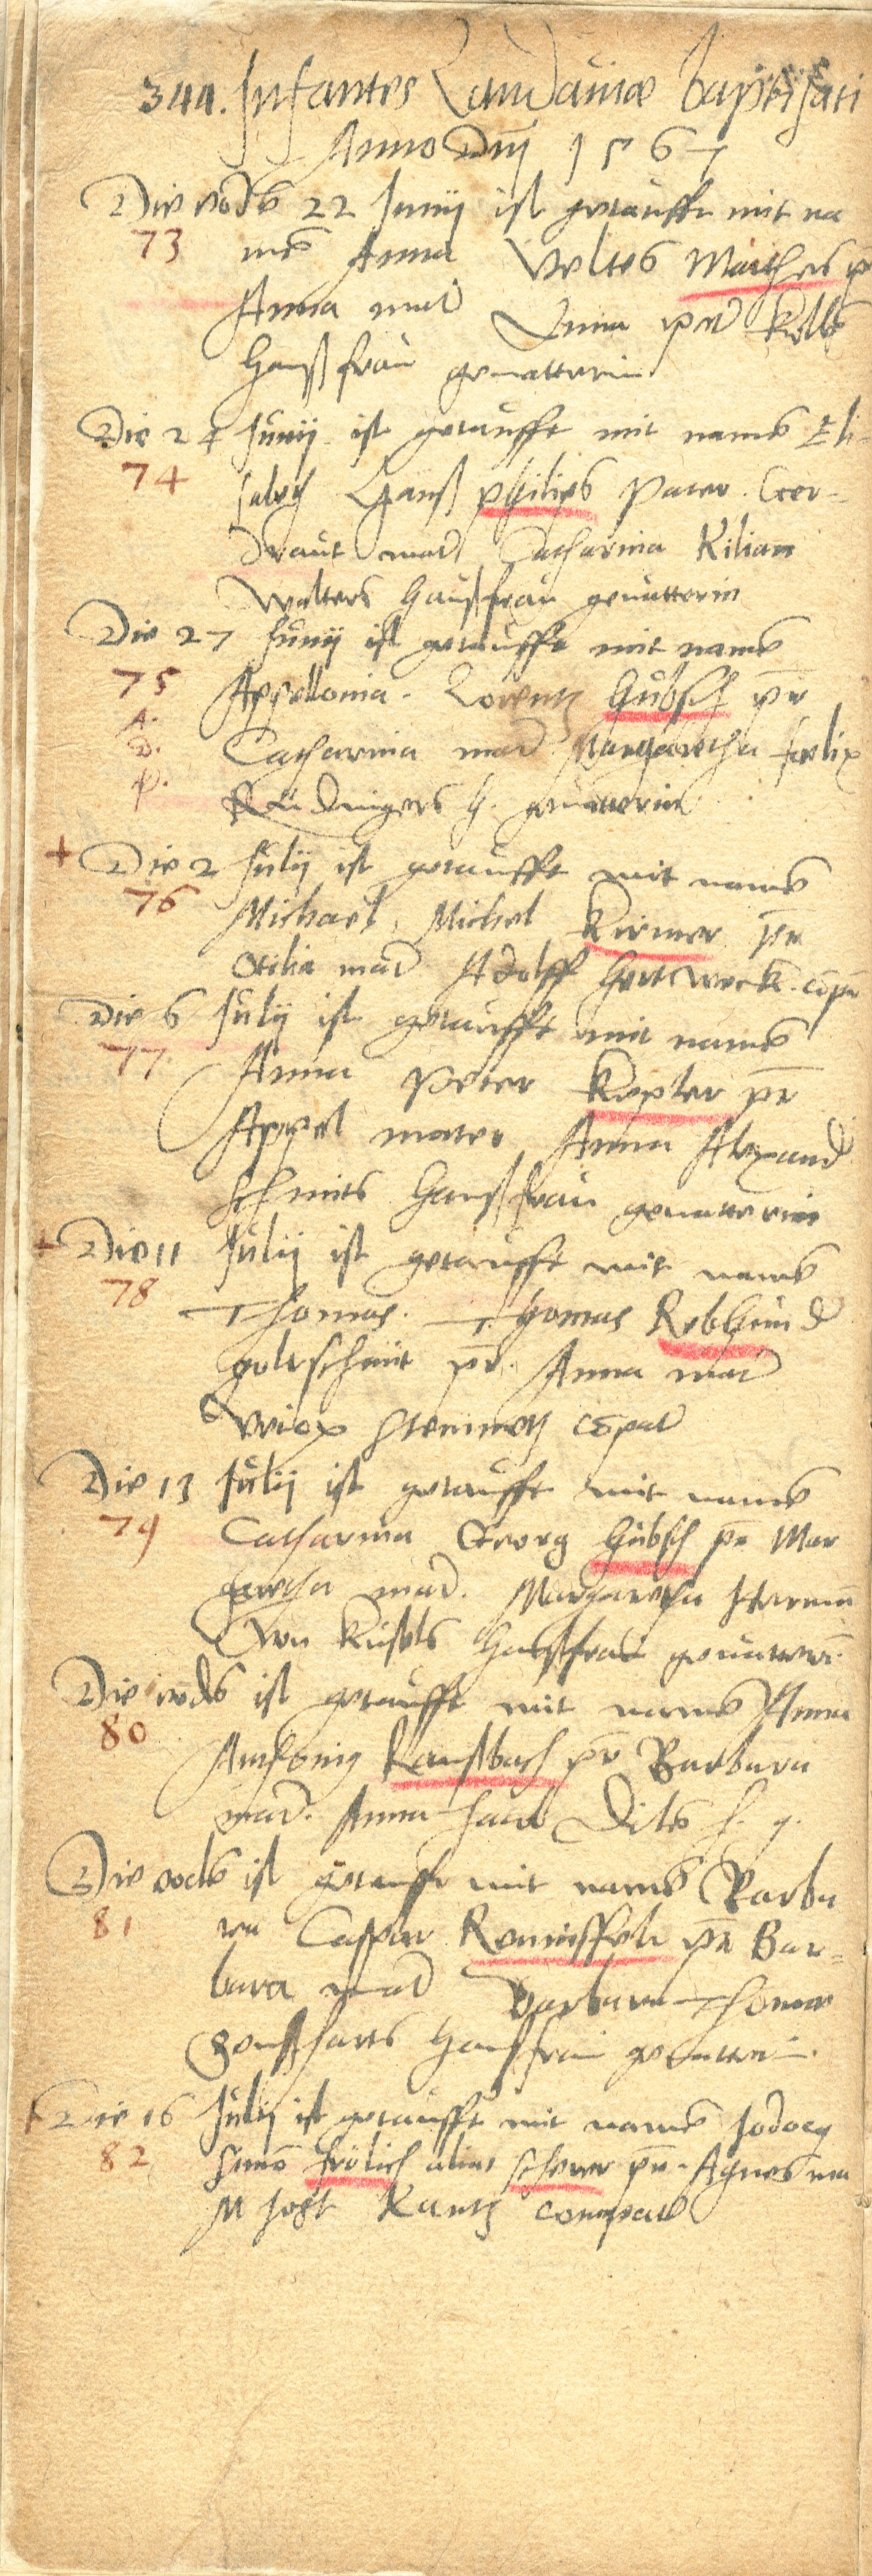 344. Infantes Landauiæ baptisati
Anno Dnj 1567
Die eodē 22 Junij ist getaufft mit na
73 mē Anna Veltēs Mathes pr
Anna mat Anna pet Kolbē
haußfrau geuatterin
Die 24 Junij ist getaufft mit namē Eli-
74 sabeth Hanß philips Pater. Ger-
draut mat Catharina Kilian
Walters haußfrau geuatterin
Die 27 Junij ist getaufft mit namē
75 Appellonia. Lorentz Hubsch pr
A.
D. Catharina mat Margaretha fælix
P. Rüdingers h. geuatterin
+ Die 2 Julij ist getaufft mit namē
76 Michael, Michel Kirmer pr
Otilia mat Adolff hertweck. cōpr
Die 6 Julij ist getaufft mit namē
77 Anna Peter Kepler pr
Appel mater Anna Alexand
schmits haußfrau geuatterin
+ Die 11 Julij ist getaufft mit namē
78 Thomas. Thomas Rebhun d
goltschmit pr. Anna mat
steinmetz cōpat
Die 13 Julij ist getaufft mit namē
79 Catharina Georg Hubsch pr Mar
geretha mat. Margaretha Herman
haußfrau geuatteri.
Die eodē ist getaufft mit namē Anna
80 Anthonig Kaußbach pr Barbara
mat. Anna h. g.
Die eodē ist getaufft mit namē Barba
81 ra Caspar pr Bar=
bara mat Barbara Thomas
haußfrau geuatterin.
+ Die 16 Julij ist getaufft mit namē Jodocq
82 Simō frölich alias scherer pr. Agnes ma
M Jost Kantz compat